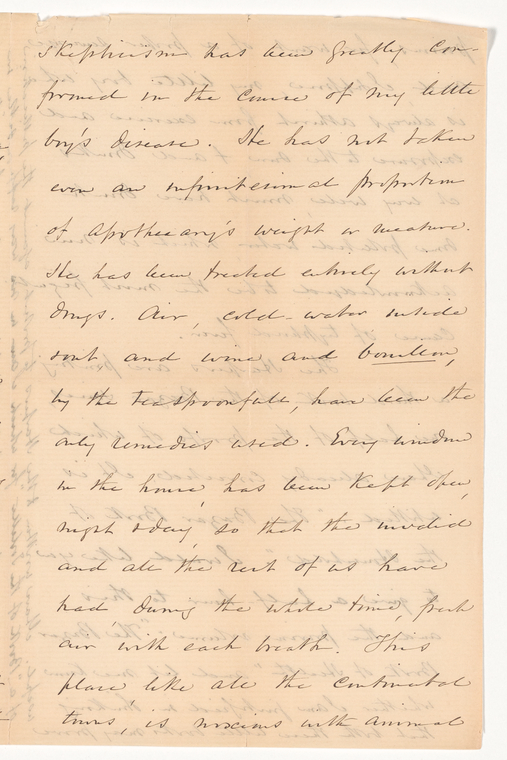 skepticism has been greatly con-
firmed in the course of my little
boy's disease. He has not taken
even an infinitesimal proportion
of apothecary's weight or measure.
He has been treated entirely without
drugs. Air, cold-water inside
and wine and bouillon,
by the teaspoonfull, have been the
only remedies used. Every window
in the house, has been kept open,
night & day, so that the invalid
and all the rest of us have
had during the whole time, fresh
air with each breath. This
place like all the continental
towns, is noxious with animal